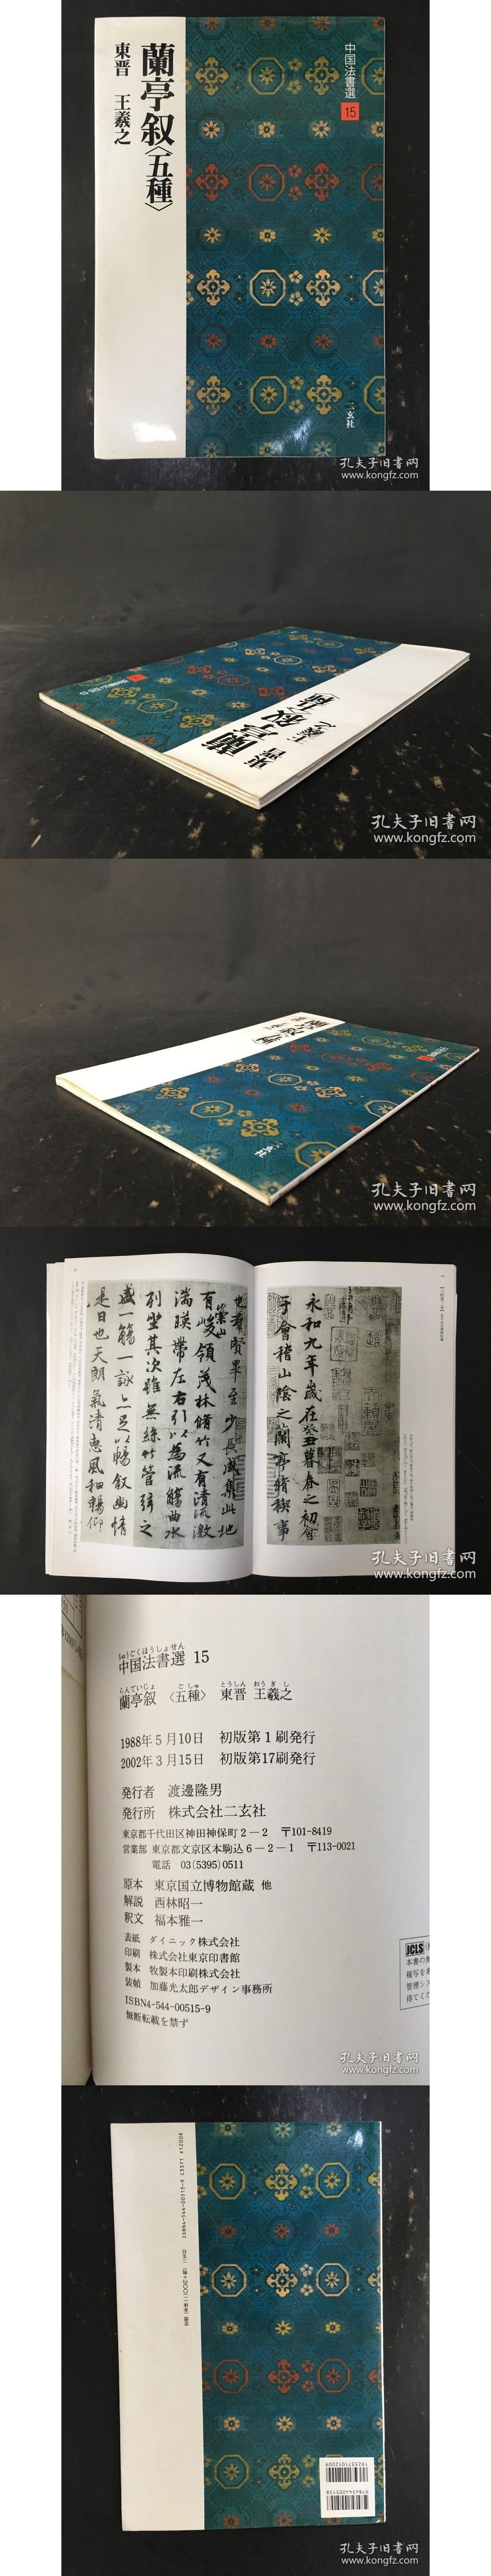 中国法書選
15
蘭亭叙〈五種〉
東晋 王羲之
二玄社
孔夫子旧書网
www.kongfz.com
蘭亭叙〈五種〉
東晋 王羲之
孔夫子旧書网
www.kongfz.com
孔夫子旧書网
www.kongfz.com
永和九年歳在癸丑暮春之初會
于會稽山陰之蘭亭脩稧事
也羣賢畢至少長咸集此地
有崇山峻領茂林脩竹又有清流激
湍暎帶左右引以為流觴曲水
列坐其次雖無絲竹管弦之
盛一觴一詠亦足以暢叙幽情
是日也天朗氣清惠風和暢仰
孔夫子旧書网
www.kongfz.com
ちゅうごくほうしょせん
中国法書選 15
らんていじょ ごしゅ とうしん おうぎし
蘭亭叙 〈五種〉 東晋 王羲之
1988年5月10日 初版第1刷発行
2002年3月15日 初版第17刷発行
発行者 渡邊隆男
発行所 株式会社二玄社
東京都千代田区神田神保町2－2 〒101-8419
営業部 東京都文京区本駒込6－2－1 〒113-0021
電話 03(5395)0511
原本 東京国立博物館蔵 他
解説 西林昭一
釈文 福本雅一
表紙 ダイニック株式会社
印刷 株式会社東京印書館
製本 牧製本印刷株式会社
装幀 加藤光太郎デザイン事務所
ISBN4-544-00515-9
無断転載を禁ず
JCLS
本書の無
複写を希
管理シス
得てくだ
孔夫子旧書网
www.kongfz.com
ISBN4-544-00515-9 C3371 ¥1200E
9784544005158
1923371012009
孔夫子旧書网
www.kongfz.com